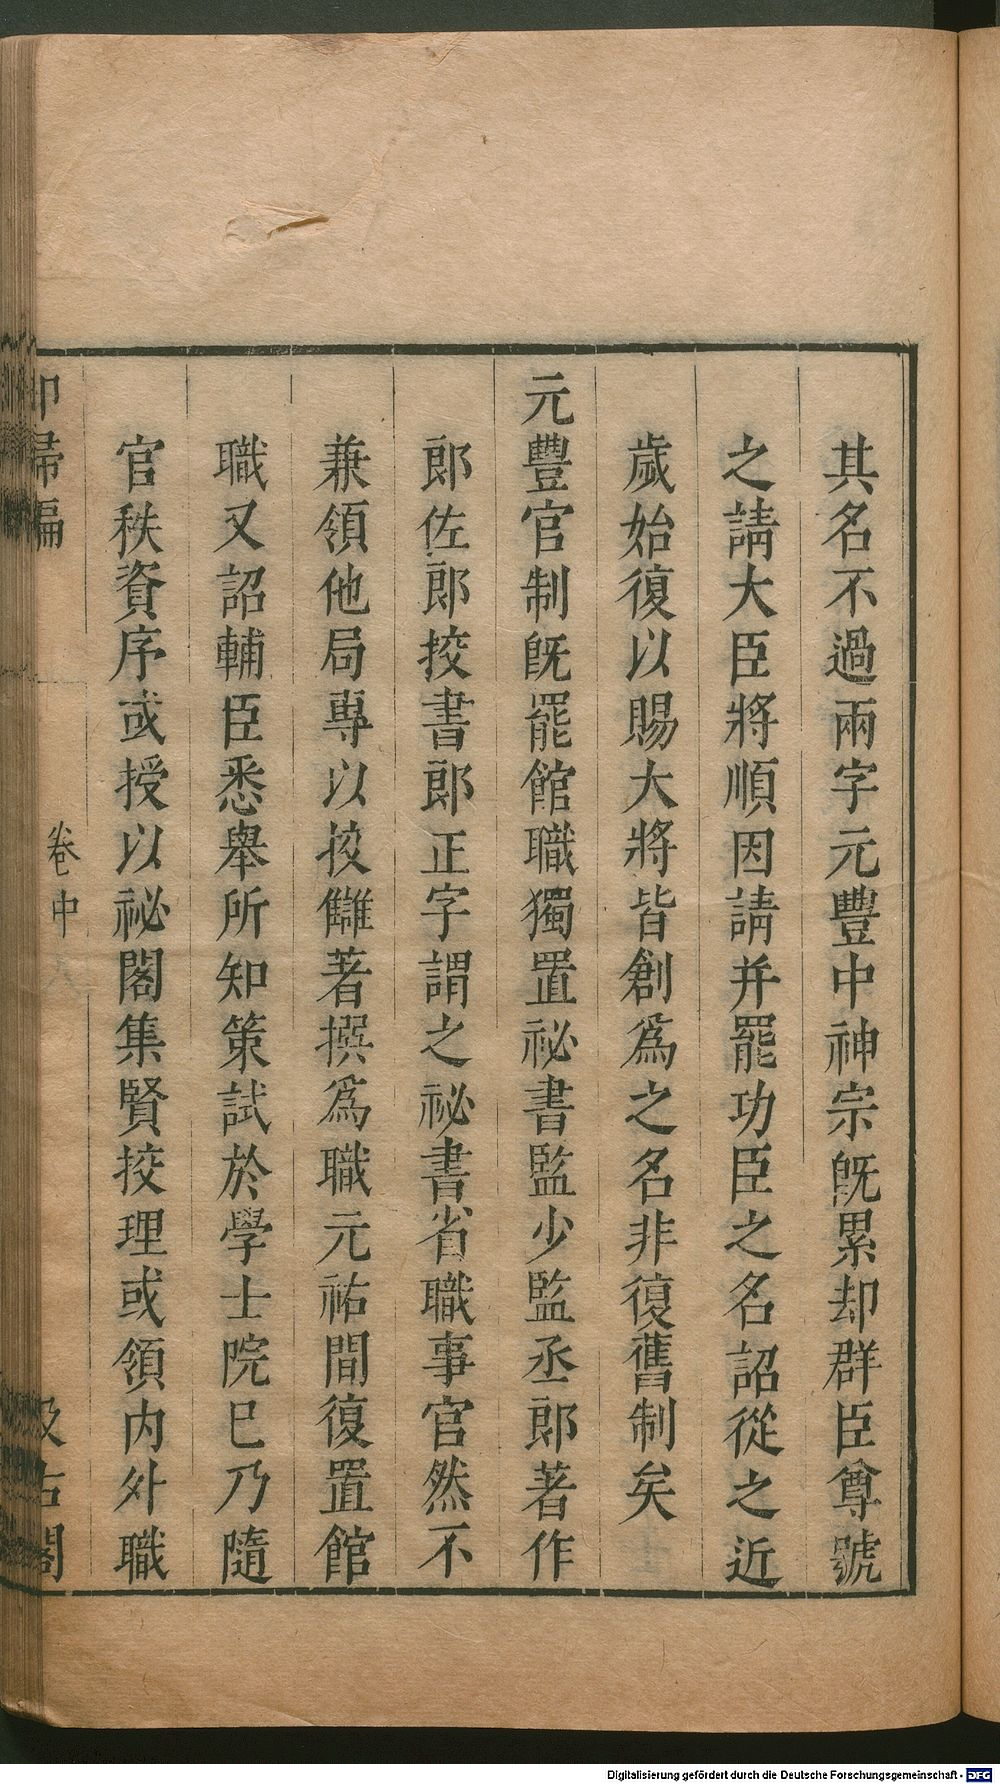 其名不過兩字元豐中神宗旣累却群臣尊號
之請大臣將順因請并罷功臣之名詔從之近
歲始復以賜大將皆創爲之名非復舊制矣
元豐官制旣罷館職獨置祕書監少監丞郎著作
郎佐郎挍書郎正字謂之祕書省職事官然不
兼領他局專以挍讎著撰爲職元祐間復置館
職又詔輔臣悉舉所知策試於學士院巳乃隨
官秩資序或授以祕閣集賢挍理或領内外職
卻掃編
卷中
汲古閣
Digitalisierung gefördert durch die Deutsche Forschungsgemeinschaft - DFG